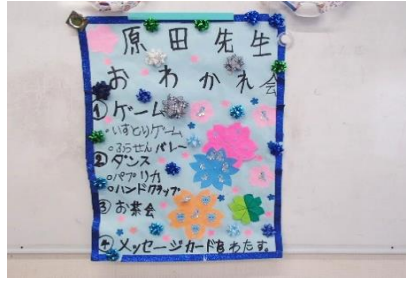 原田先生
おわかれ会
①ゲーム
○いすとりゲーム
○ふうせんバレー
②ダンス
○パプリカ
○ハンドクラップ
③お茶会
④メッセージカードをわたす。